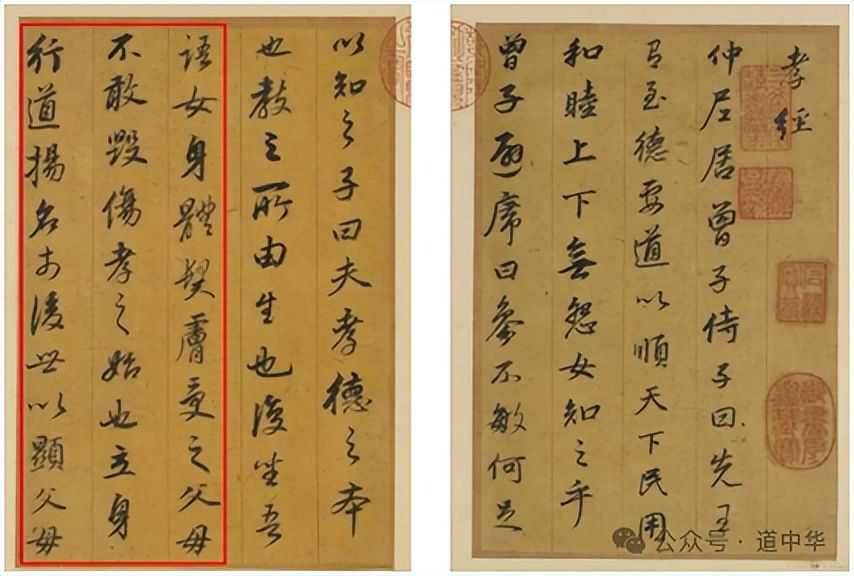 孝經
仲尼居曾子侍子曰先王
有至德要道以順天下民用
和睦上下無怨女知之乎
曾子避席曰參不敏何足
以知之子曰夫孝德之本
也教之所由生也復坐吾
語女身體髮膚受之父母
不敢毀傷孝之始也立身
行道揚名於後世以顯父母
公众号·道中华